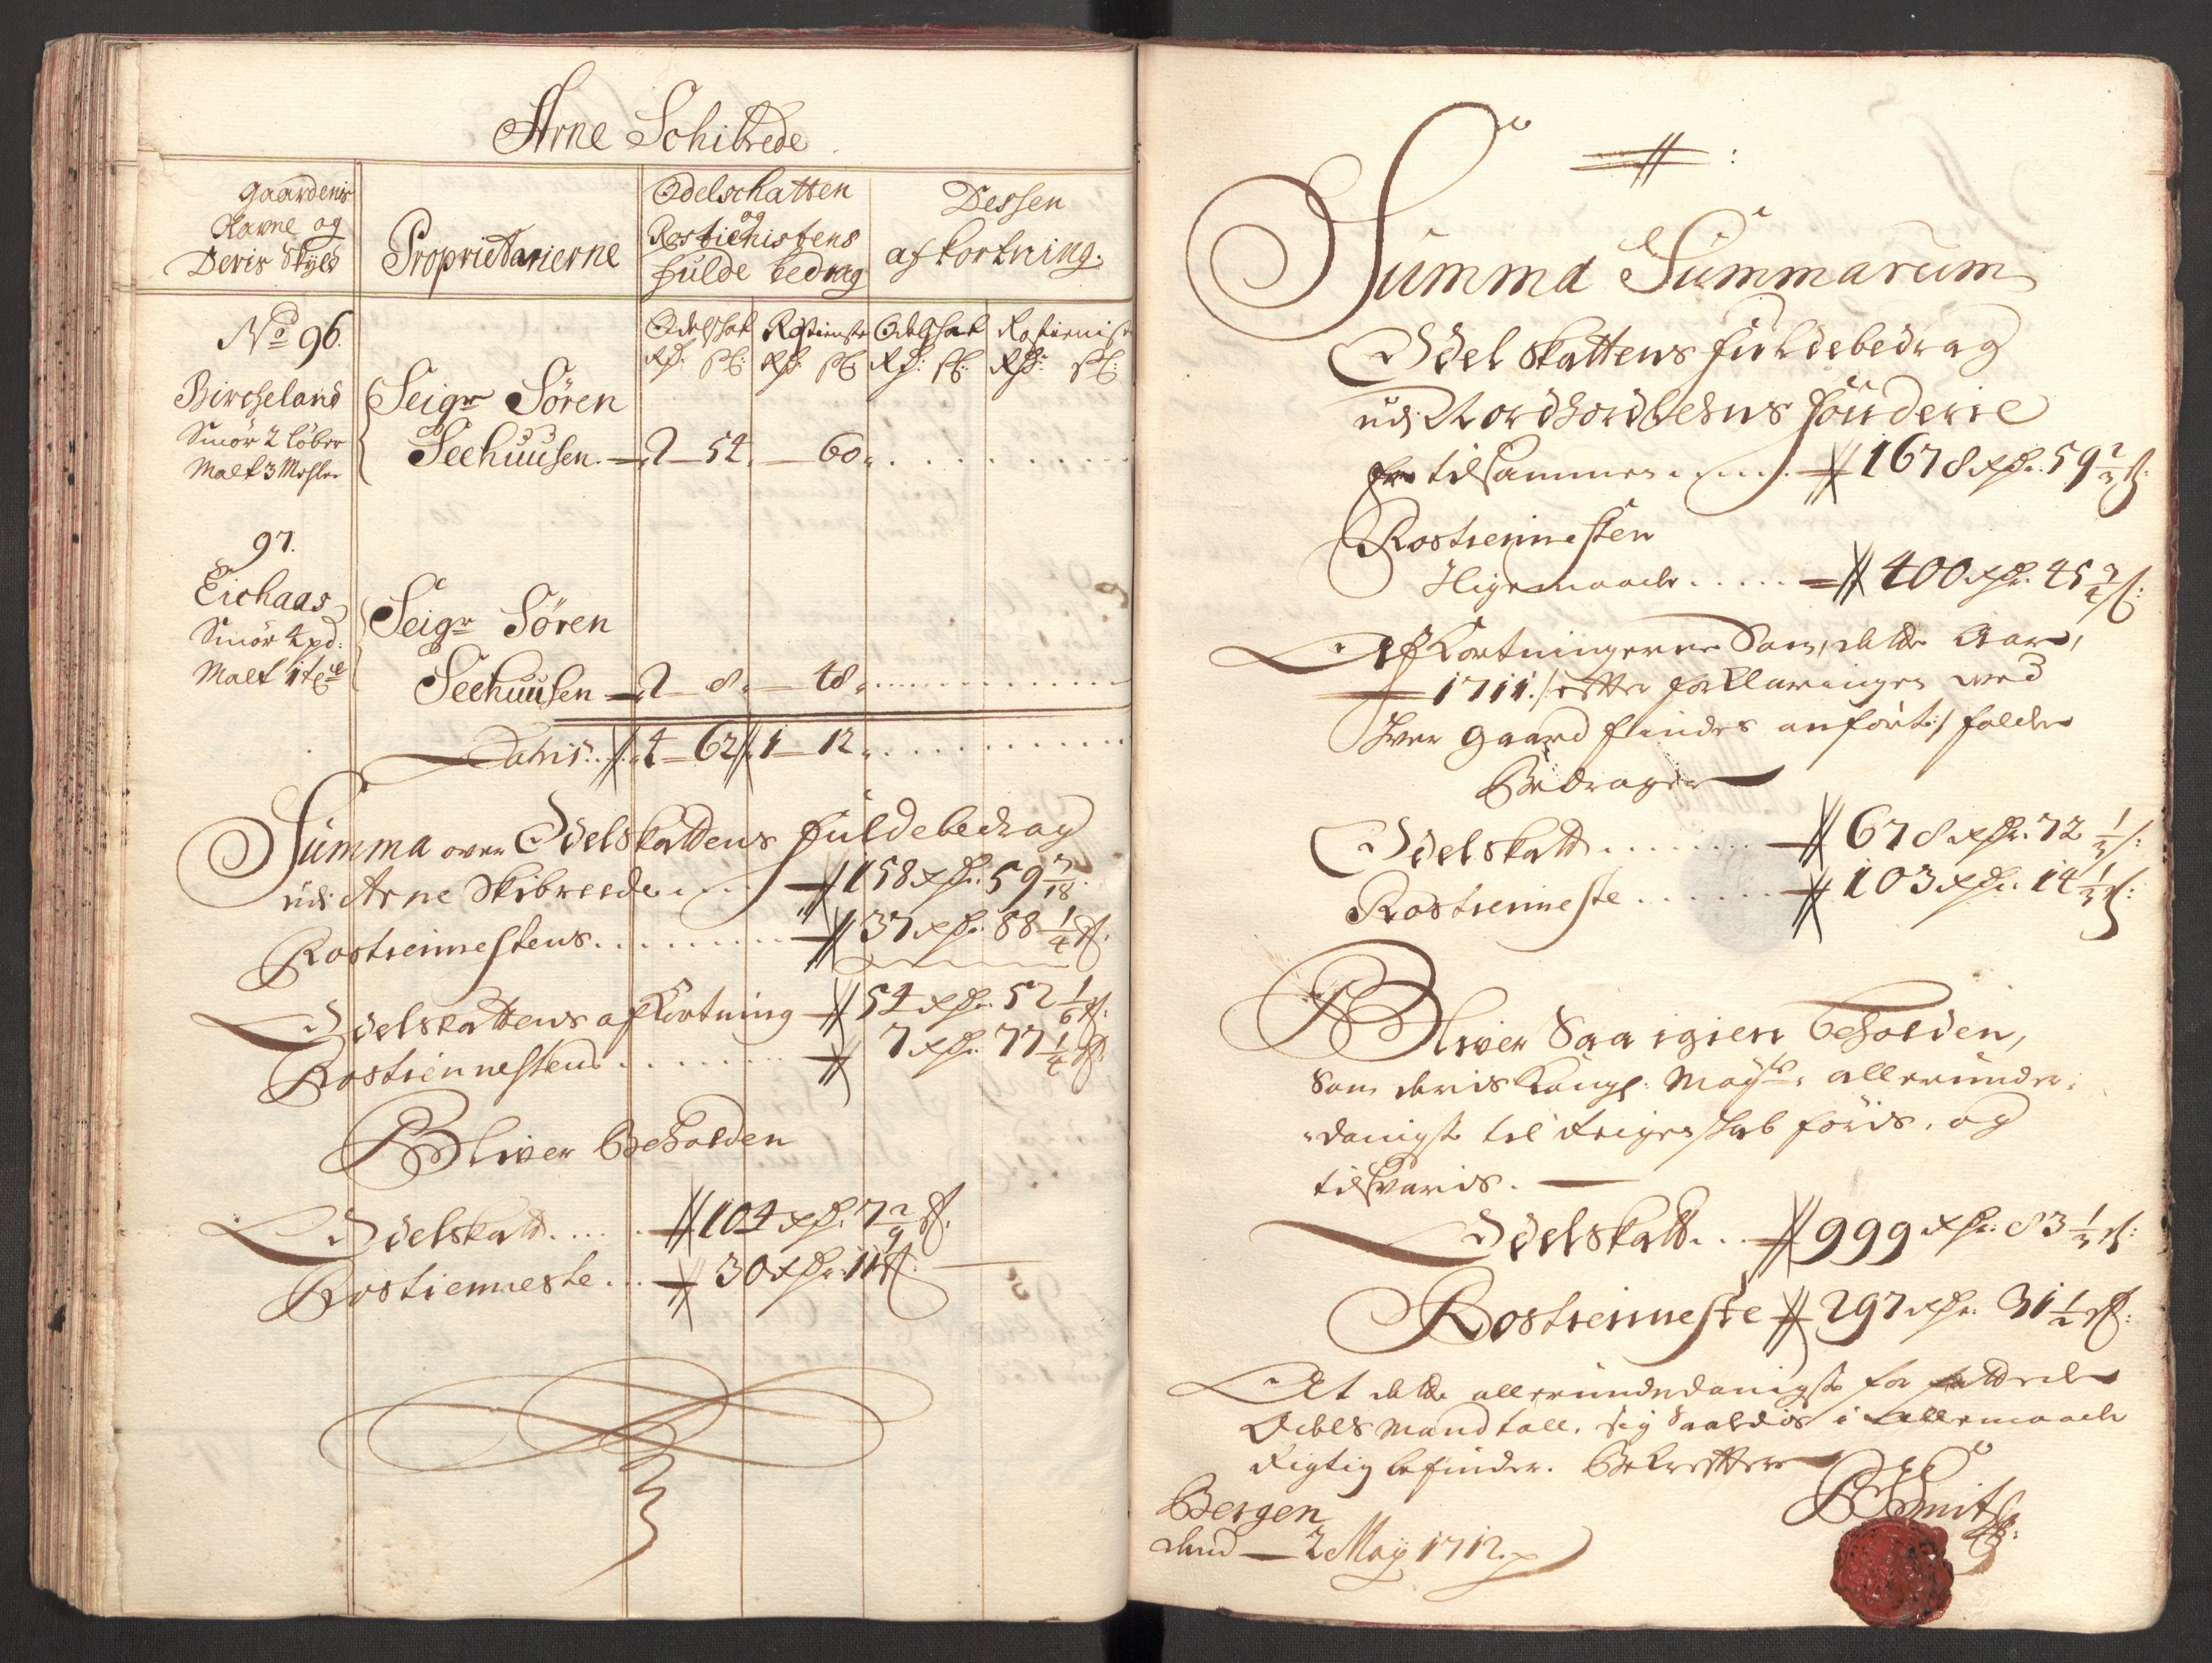 Arne Schibrede
Gaardenis
Navne og
Deris Skyld
Proprietarierne
Odelschatten
og
Rostienistens
fulde bedrag
Dessen
afkortning.
No 96.
Odelskat Rostieniste Odelskat Rostienist
Rdr: ß: Rdr: ß: Rdr: ß: Rdr: ß:
Bircheland
Smör 2 løber
Malt 3 Mehler
Seigr Sören
Seehuusen. 2 54. 60.
97.
Eichaas
Smör 4 pd:
Malt 1
Seigr Sören
Seehuusen 2 8. 48.
Latris 4 62 1 12.
Summa over Odelskattens fuldebedrag
udi Arne Skibreede 158 Rdr: 59 7/18
Rostiennestens 37 Rdr: 88 1/4 ß:
Odelskattens afKortning 54 Rdr: 52 1/6 ß:
Rostiennestens 7 Rdr: 77 1/4 ß:
Bliver Beholden
Odelskatt 104 Rdr: 7 2/9 ß:
Rostienneste 30 Rdr: 11 ß:
Summa Summarum
Odel Skattens fuldebedrag
udj Nordhordlehns fougderie
er tilsammen 1678 Rdr: 59 2/3 ß:
Rostiennesten
Ligemaade 400 Rdr: 45 3/4 ß:
AfKortningerne Som, dette Aar,
1711 / effter forklaringen ved
hver gaard findes anført / falder
Bedrager
Odelskatt 678 Rdr: 72 1/3 ß:
Rostienneste 103 Rdr: 14 1/3 ß:
Bliver Saa igien beholden,
Som deris Kongl: Mayts: allerunder-
danigst til Reigenskab föris, og
tilsvaris.
Odelskatt 999 Rdr: 83 1/3 ß:
Rostienneste 297 Rdr: 31 1/2 ß:
At dette allerunderdanigst for fattede
Odels Mandtall, sig Saaledis i allemaade
Rigtig befinder. Bekreffter
Bergen
dend 2 Maij 1712.
Smit